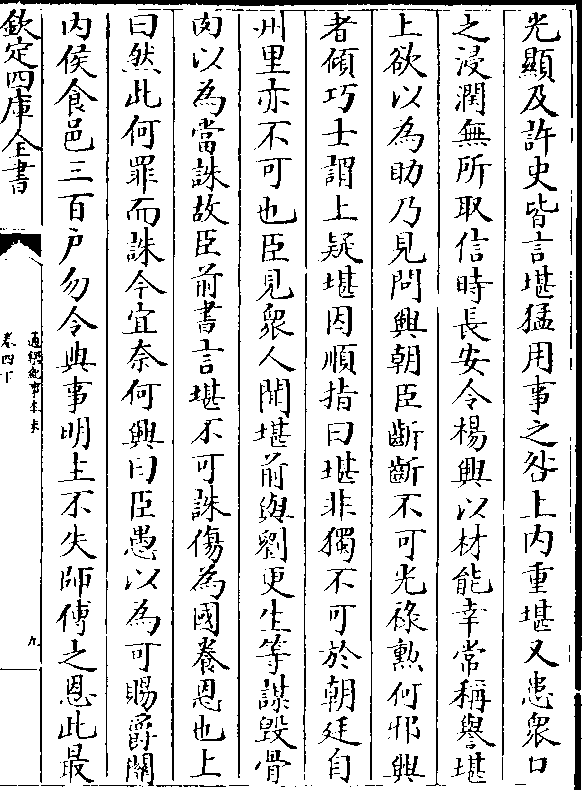 光顯及許史皆言堪猛用事之咎上内重堪又患衆口
之浸潤無所取信時長安令楊興以材能幸常稱譽堪
上欲以為助乃見問興朝臣齗齗不可光禄勲何邪興
者傾巧士謂上疑堪因順指曰堪非獨不可於朝廷自
州里亦不可也臣見衆人聞堪前與劉更生等謀毁骨
肉以為當誅故臣前書言堪不可誅傷為國養恩也上
曰然此何罪而誅今宜奈何興曰臣愚以為可賜爵闗
内侯食邑三百户勿令典事明主不失師傅之恩此最
欽定四庫全書
通鑑紀事本末
卷四下
九